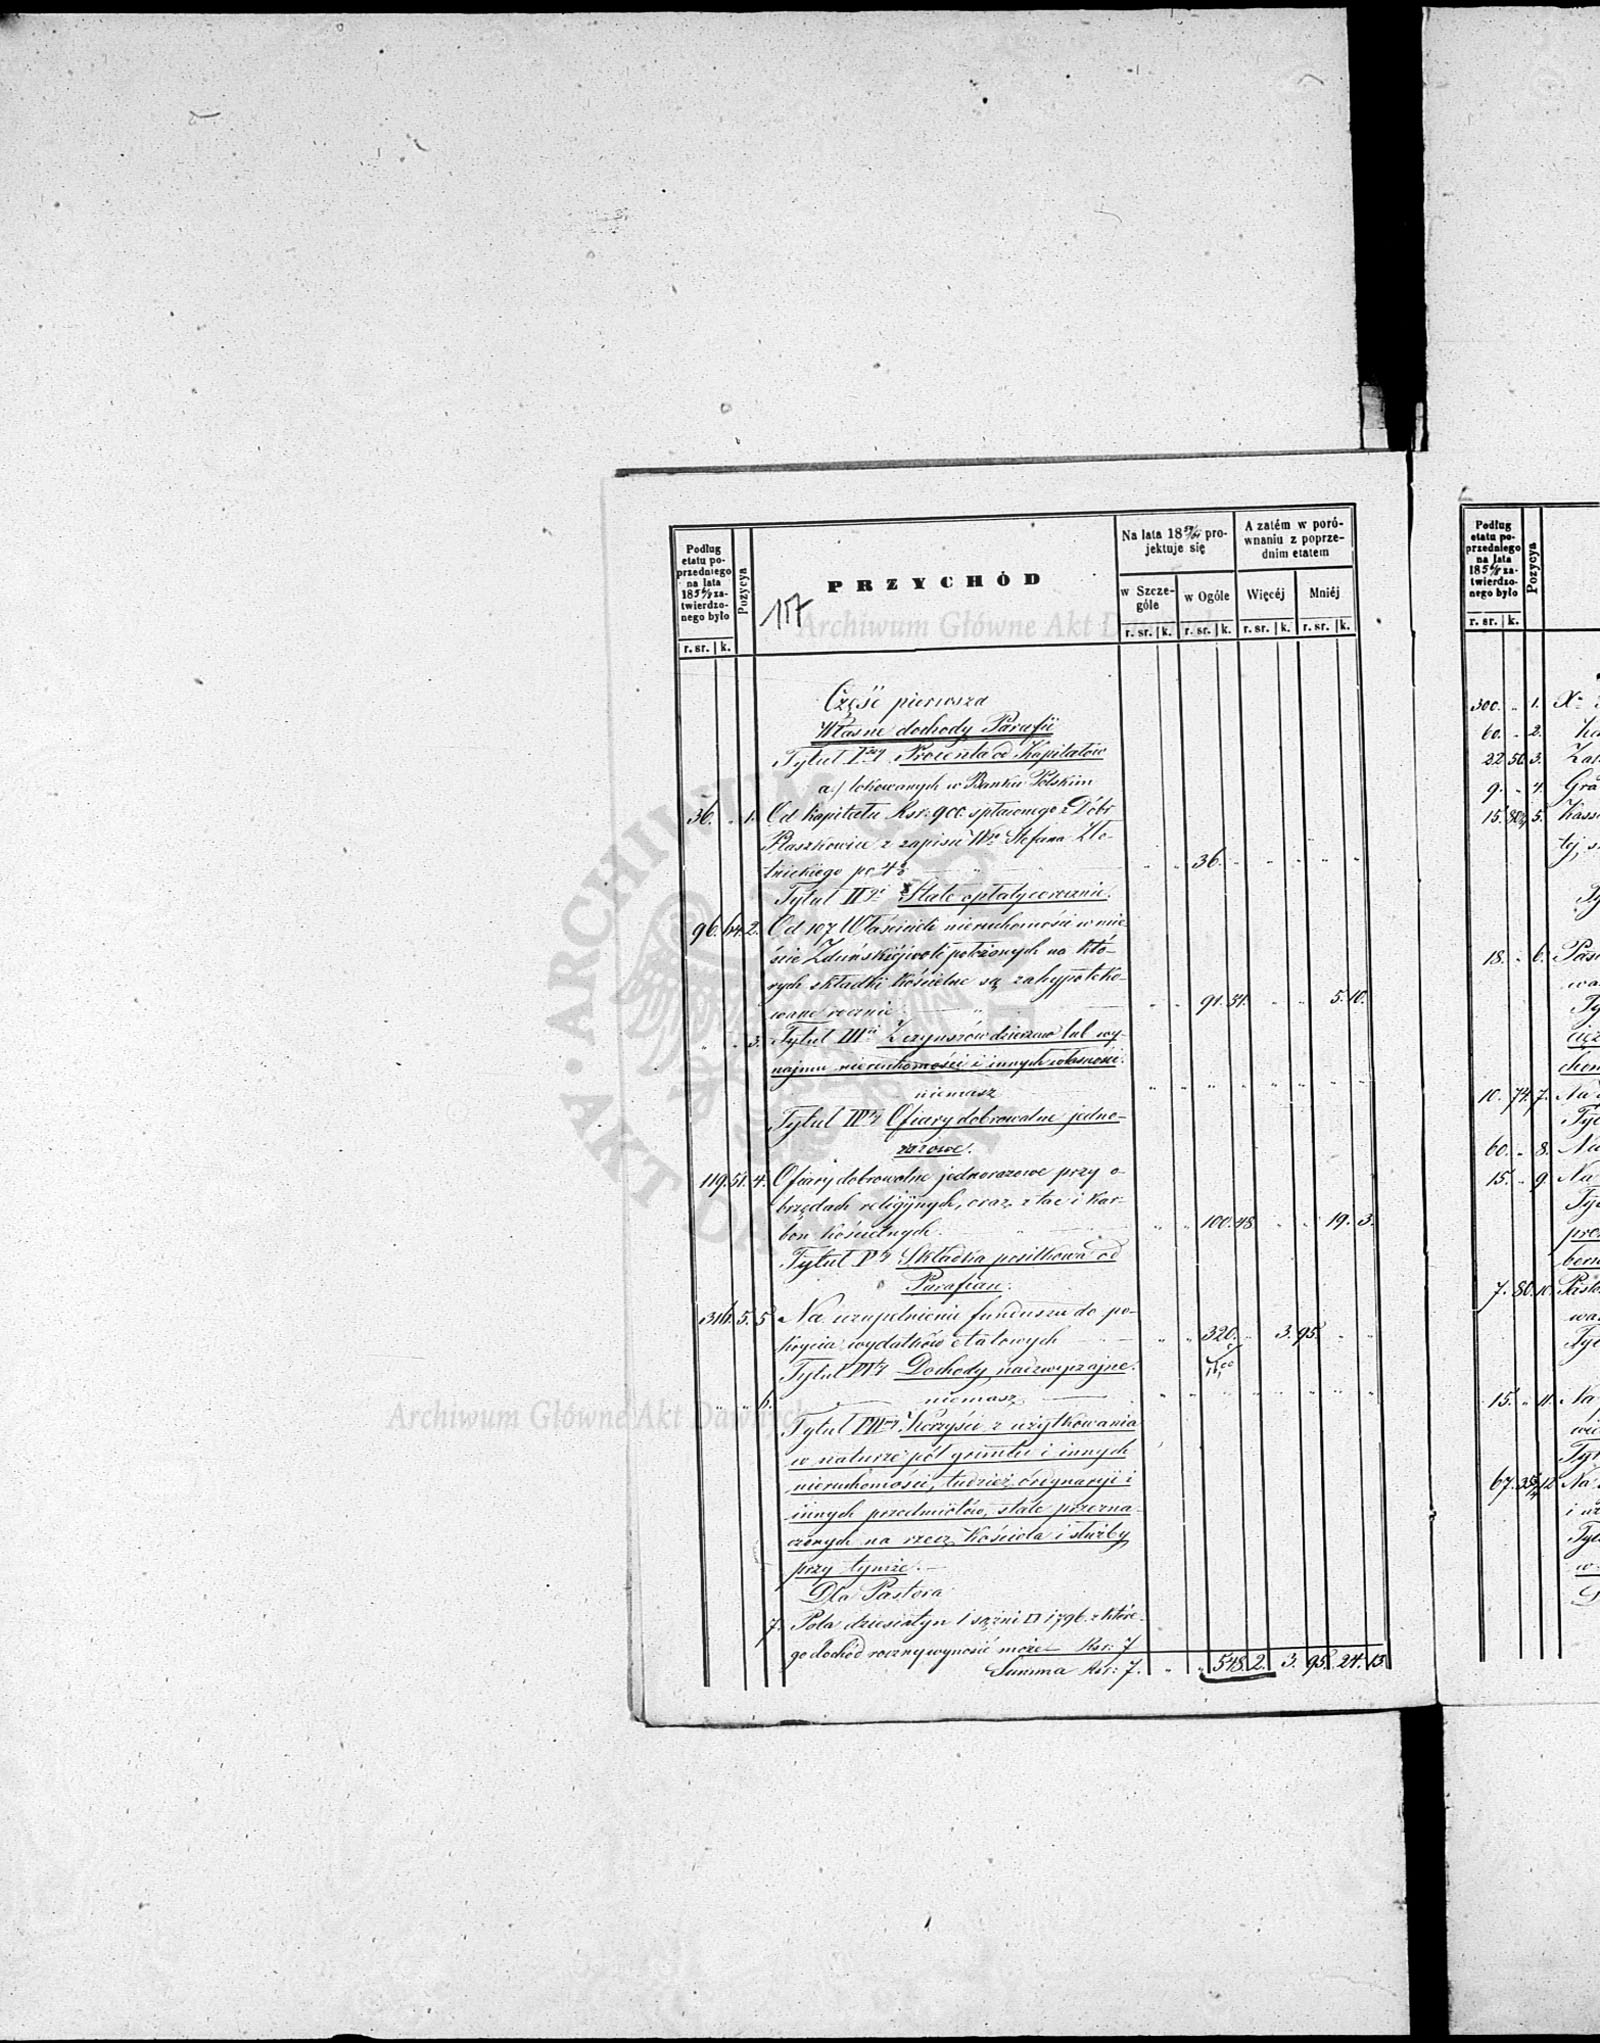 Podług etatu poprzedniego na lata 185 6/8 zatwierdzonego było
Pozycya
PRZYCHÓD
Na lata 18 59/61 projektuje się
A zatém w porównaniu z poprzednim etatem
w Szczególe
w Ogóle
Więcéj
Mniéj
r. sr. | k.
r. sr. | k. r. sr. | k. r. sr. | k. r. sr. | k.
117
Część pierwsza
Własne dochody Parafii
Tytuł Iszy Procenta od Kapitałów
a/ lokowanych w Banku Polskim
36. „ 1. Od kapitału Rsr: 900. spłaconego z Dóbr
Ptaszkowice z zapisu Wgo Stefana Zło-
tnickiego po 4% „ „ 36. „ „ „ „ „
Tytuł IIgi Stałe opłaty coroczne.
96. 64. 2. Od 107 Właścicieli nieruchomości w mie
ście Zduńskiéjwoli położonych na któ-
rych składki kościelne są zahypoteko-
wane rocznie „ „ 91. 54. „ „ 5. 10.
„ „ 3. Tytuł IIIci Z czynszów dzierżaw lub wy-
najmu nieruchomości i innych własności.
niemasz „ „ „ „ „ „ „ „
Tytuł IVty Ofiary dobrowolne jedno-
razowe.
119. 51. 4. Ofiary dobrowolne jednorazowe przy o-
brzędach religijnych, oraz z tac i kar-
bon kościelnych. „ „ 100. 48. „ „ 19. 3.
Tytuł Vty Składka posiłkowa od
Parafian.
316. 5. 5 Na uzupełnienie funduszu do po-
krycia wydatków etatowych „ „ 320. „ 3. 95. „ „
Tytuł VIty Dochody nadzwyczajne.
„ „ 6. niemasz „ „ „ „ „ „ „ „
Tytuł VIImy Korzyści z użytkowania
w naturze pól gruntu i innych
nieruchomości, tudzież ordynaryi i
innych przedmiotów, stale przezna-
czonych na rzecz Kościoła i służby
przy tymże.
Dla Pastora
7. Pola dziesiatyn 1 sążni □ 1796. z któré-
go dochód roczny wynosić może Rsr: 7
Summa Rsr: 7. „ „ 548. 2. 3. 95. 24. 13.
Podług etatu poprzedniego na lata 185 6/8 zatwierdzonego było
Pozycya
r. sr. | k.
300. „ 1.
60. „ 2.
22 50. 3.
9. „ 4. Gra
15. 5. Kass
18. „ 6.
10. 74. 7. Na
60. „ 8. Na
15. „ 9. Na
7. 80. 10.
15. „ 11. Na
67. 12. Na
Archiwum Główne Akt Dawnych
Archiwum Główne Akt Dawnych